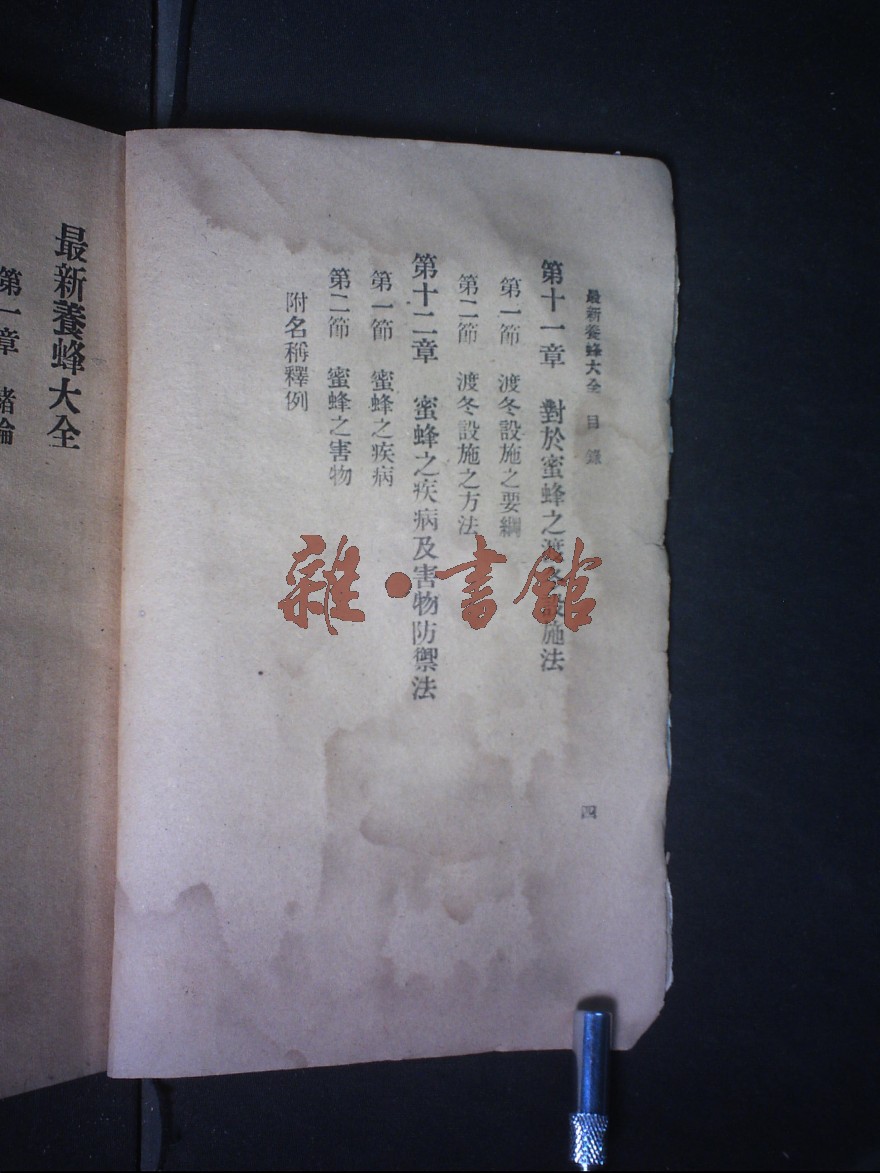 最新養蜂大全 目錄
四
第十一章 對於蜜蜂之渡冬設施法
第一節 渡冬設施之要綱
第二節 渡冬設施之方法
第十二章 蜜蜂之疾病及害物防禦法
第一節 蜜蜂之疾病
第二節 蜜蜂之害物
附名稱釋例
最新養蜂大全
第一章 緒論
雜·書館